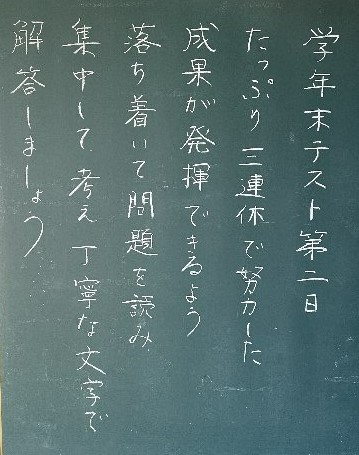 学年末テスト第二日
たっぷり三連休で努力した
成果が発揮できるよう
落ち着いて問題を読み
集中して考え丁寧な文字で
解答しましょう